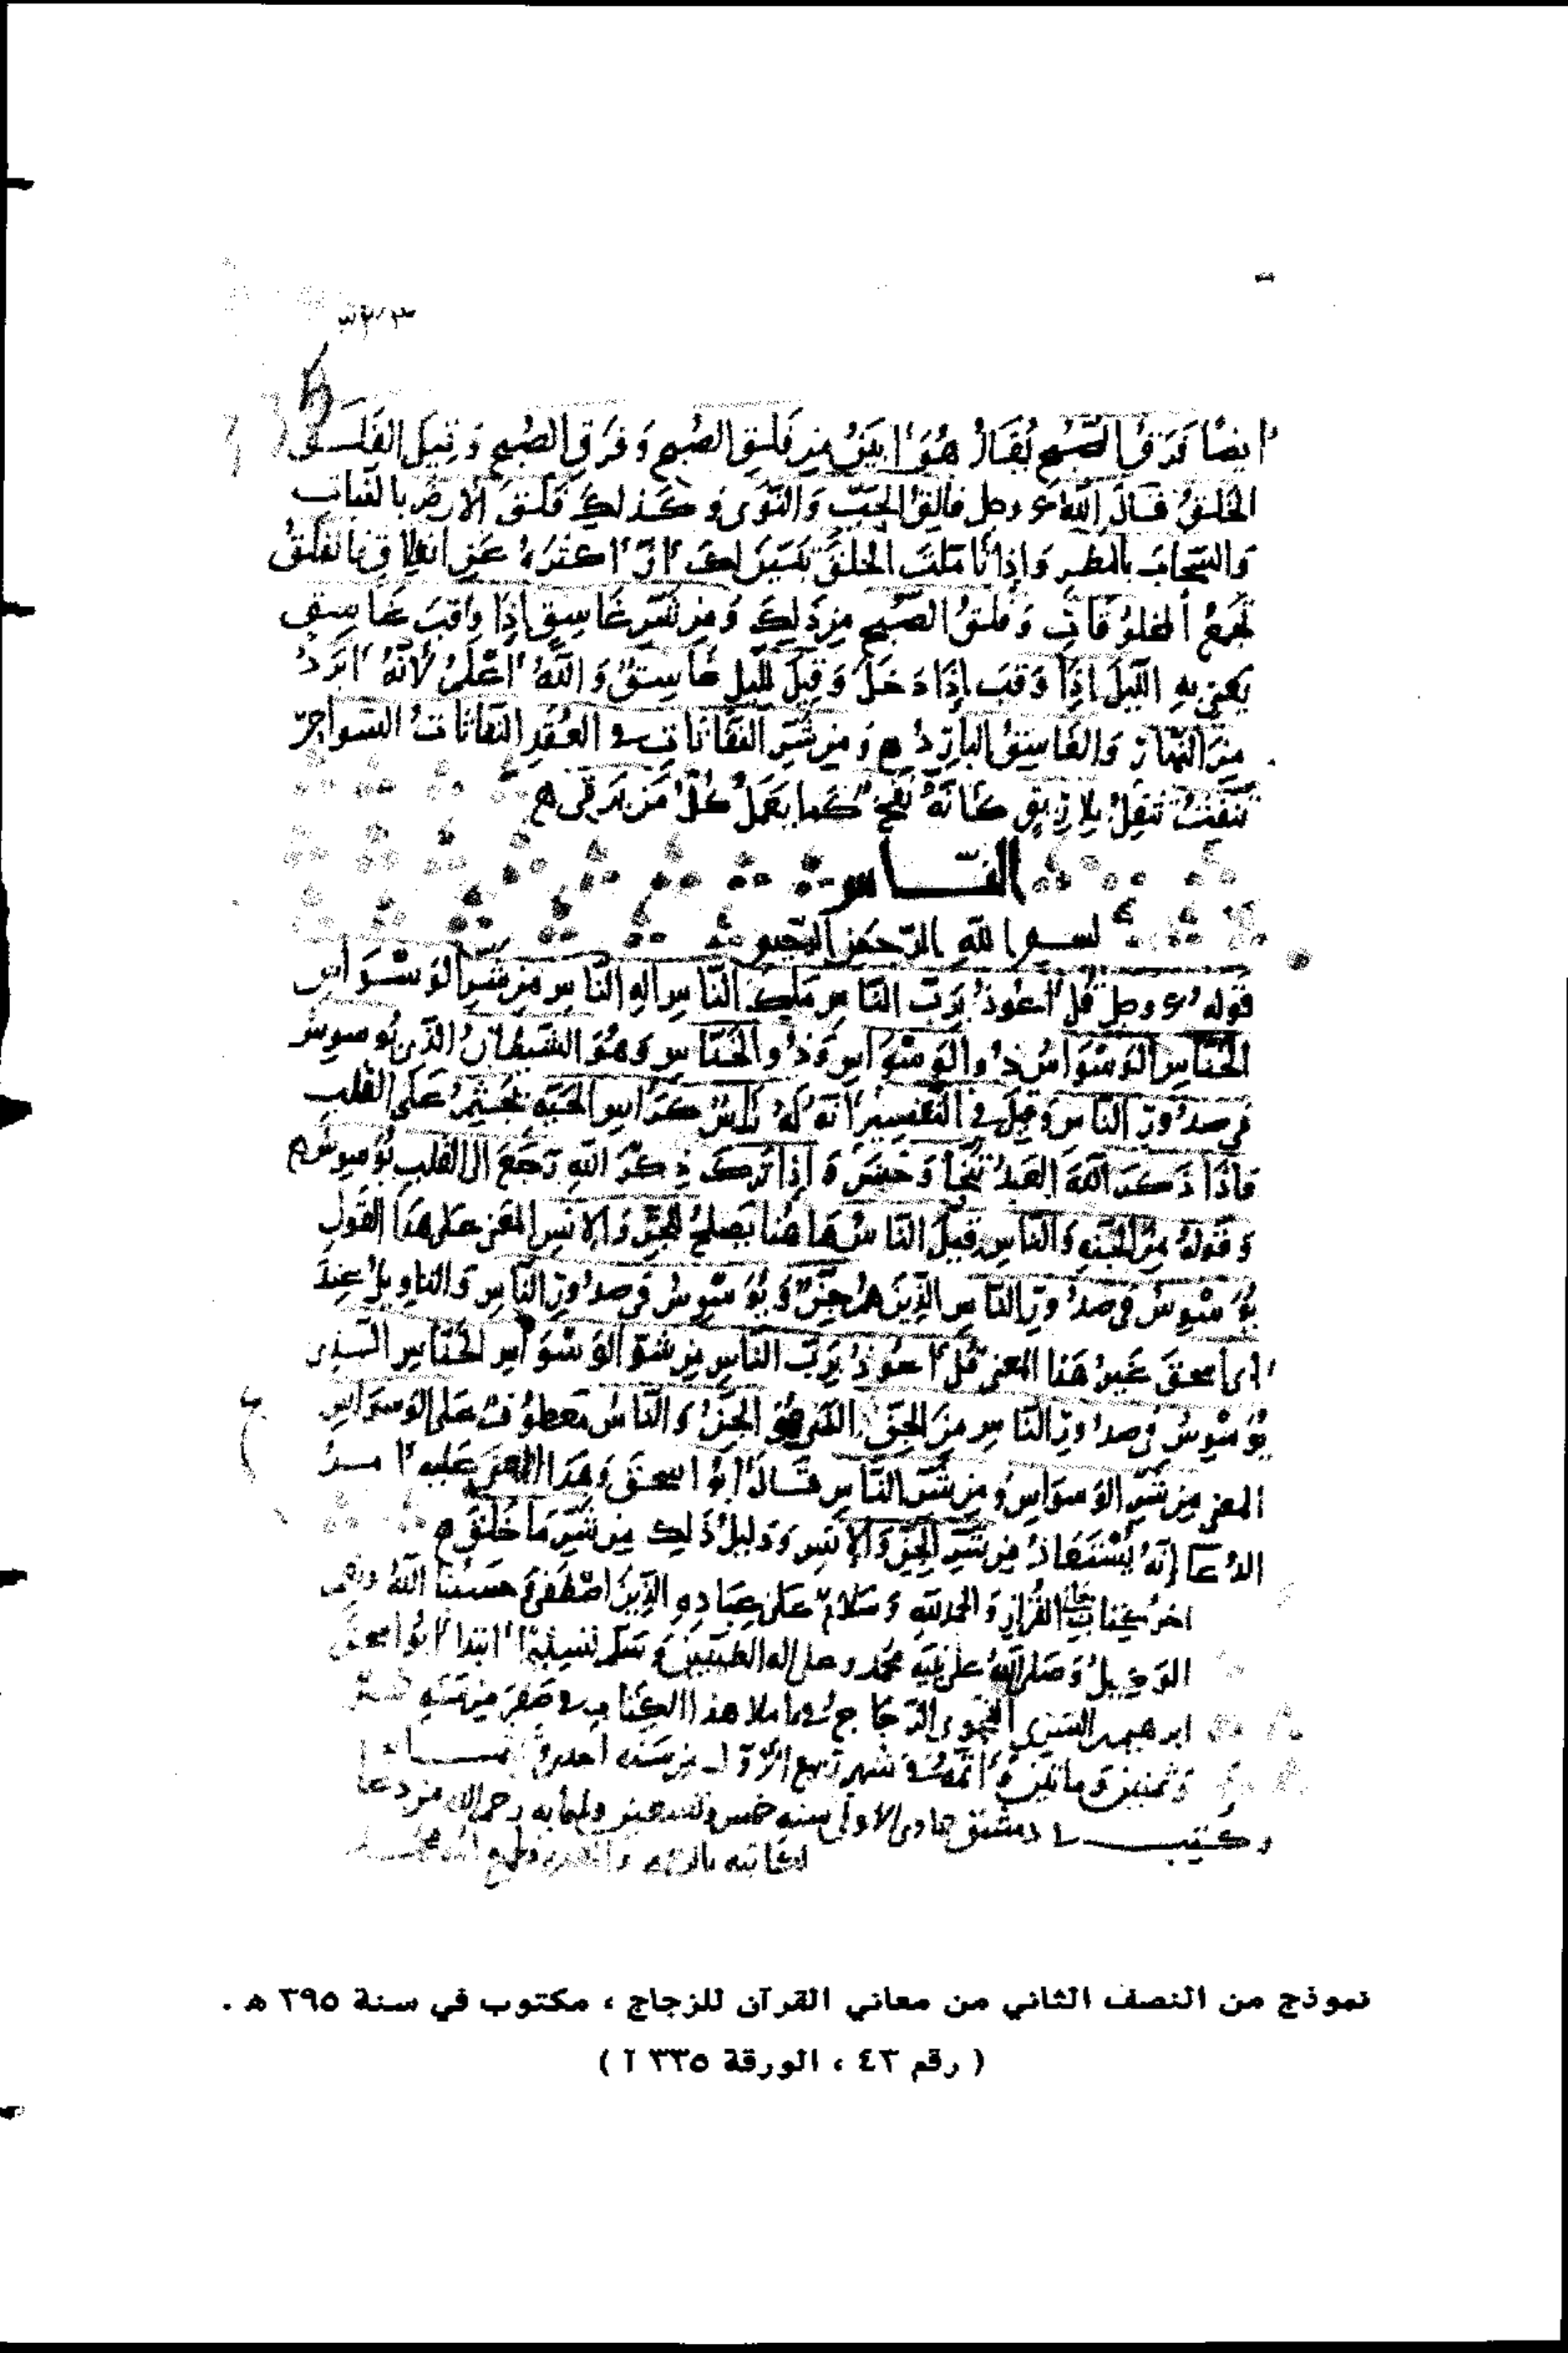 ايضا فرق الصبح يقال هو ابين من فلق الصبح وفرق الصبح وقيل الفلق
الخلق قال الله عز وجل فالق الحب والنوى وكذلك فلق الارض بالنبات
والسحاب بالمطر واذا تاملت الخلق تبين لك ان اكثره عن انفلاق فالفلق
جميع المخلوقات وفلق الصبح من ذلك ومن شر غاسق اذا وقب غاسق
يعني به الليل اذا وقب اذا دخل وقيل لليل غاسق والله اعلم لانه ابرد
من النهار والغاسق البارد ومن شر النفاثات في العقد النفاثات السواحر
تنفث تتفل بلا ريق كانه نفخ كما يعمل كل من يرقي
الناس
بسم الله الرحمن الرحيم
قوله عز وجل قل اعوذ برب الناس ملك الناس اله الناس من شر الوسواس
الخناس الوسواس ذو الوسواس وذو الخناس وهو الشيطان الذي يوسوس
في صدور الناس وقيل في التفسير انه له راس كراس الحية يجثم على القلب
فاذا ذكر الله العبد تنحا وخنس واذا ترك ذكر الله رجع الى القلب يوسوس
وقوله من الجنة والناس قيل الناس هاهنا يصلح للجن والانس المعنى على هذا القول
يوسوس في صدور الناس الذين هم جن ويوسوس في صدور الناس والتاويل عند
ابي اسحق غير هذا المعنى قل اعوذ برب الناس من شر الوسواس الخناس الذي
يوسوس في صدور الناس من الجن الذي هو الجن والناس معطوف على الوسواس
المعنى من شر الوسواس ومن شر الناس قال ابو اسحق وهذا المعنى عليه امر
الدعا انه يستعاذ من شر الجن والانس ودليل ذلك من شر ما خلق
اخر كتاب معاني القران والحمد لله وسلام على عباده الذين اصطفى حسبنا الله ونعم
الوكيل وصلى الله على نبيه محمد وعلى اله الطيبين وسلم تسليما ابتدا ابو اسحق
ابرهيم السري النحوي الزجاج املا هذا الكتاب في صفر من سنة
وثمنين ومائتين واتمه في شهر ربيع الاول من سنة احدى
وكتب في دمشق جمادى الاولى سنه خمس وتسعين وثلثمايه رحم الله من دعا
لكاتبه
نموذج من النصف الثاني من معاني القرآن للزجاج ، مكتوب في سنة ٣٩٥ هـ .
( رقم ٤٣ ، الورقة ٣٣٥ آ )